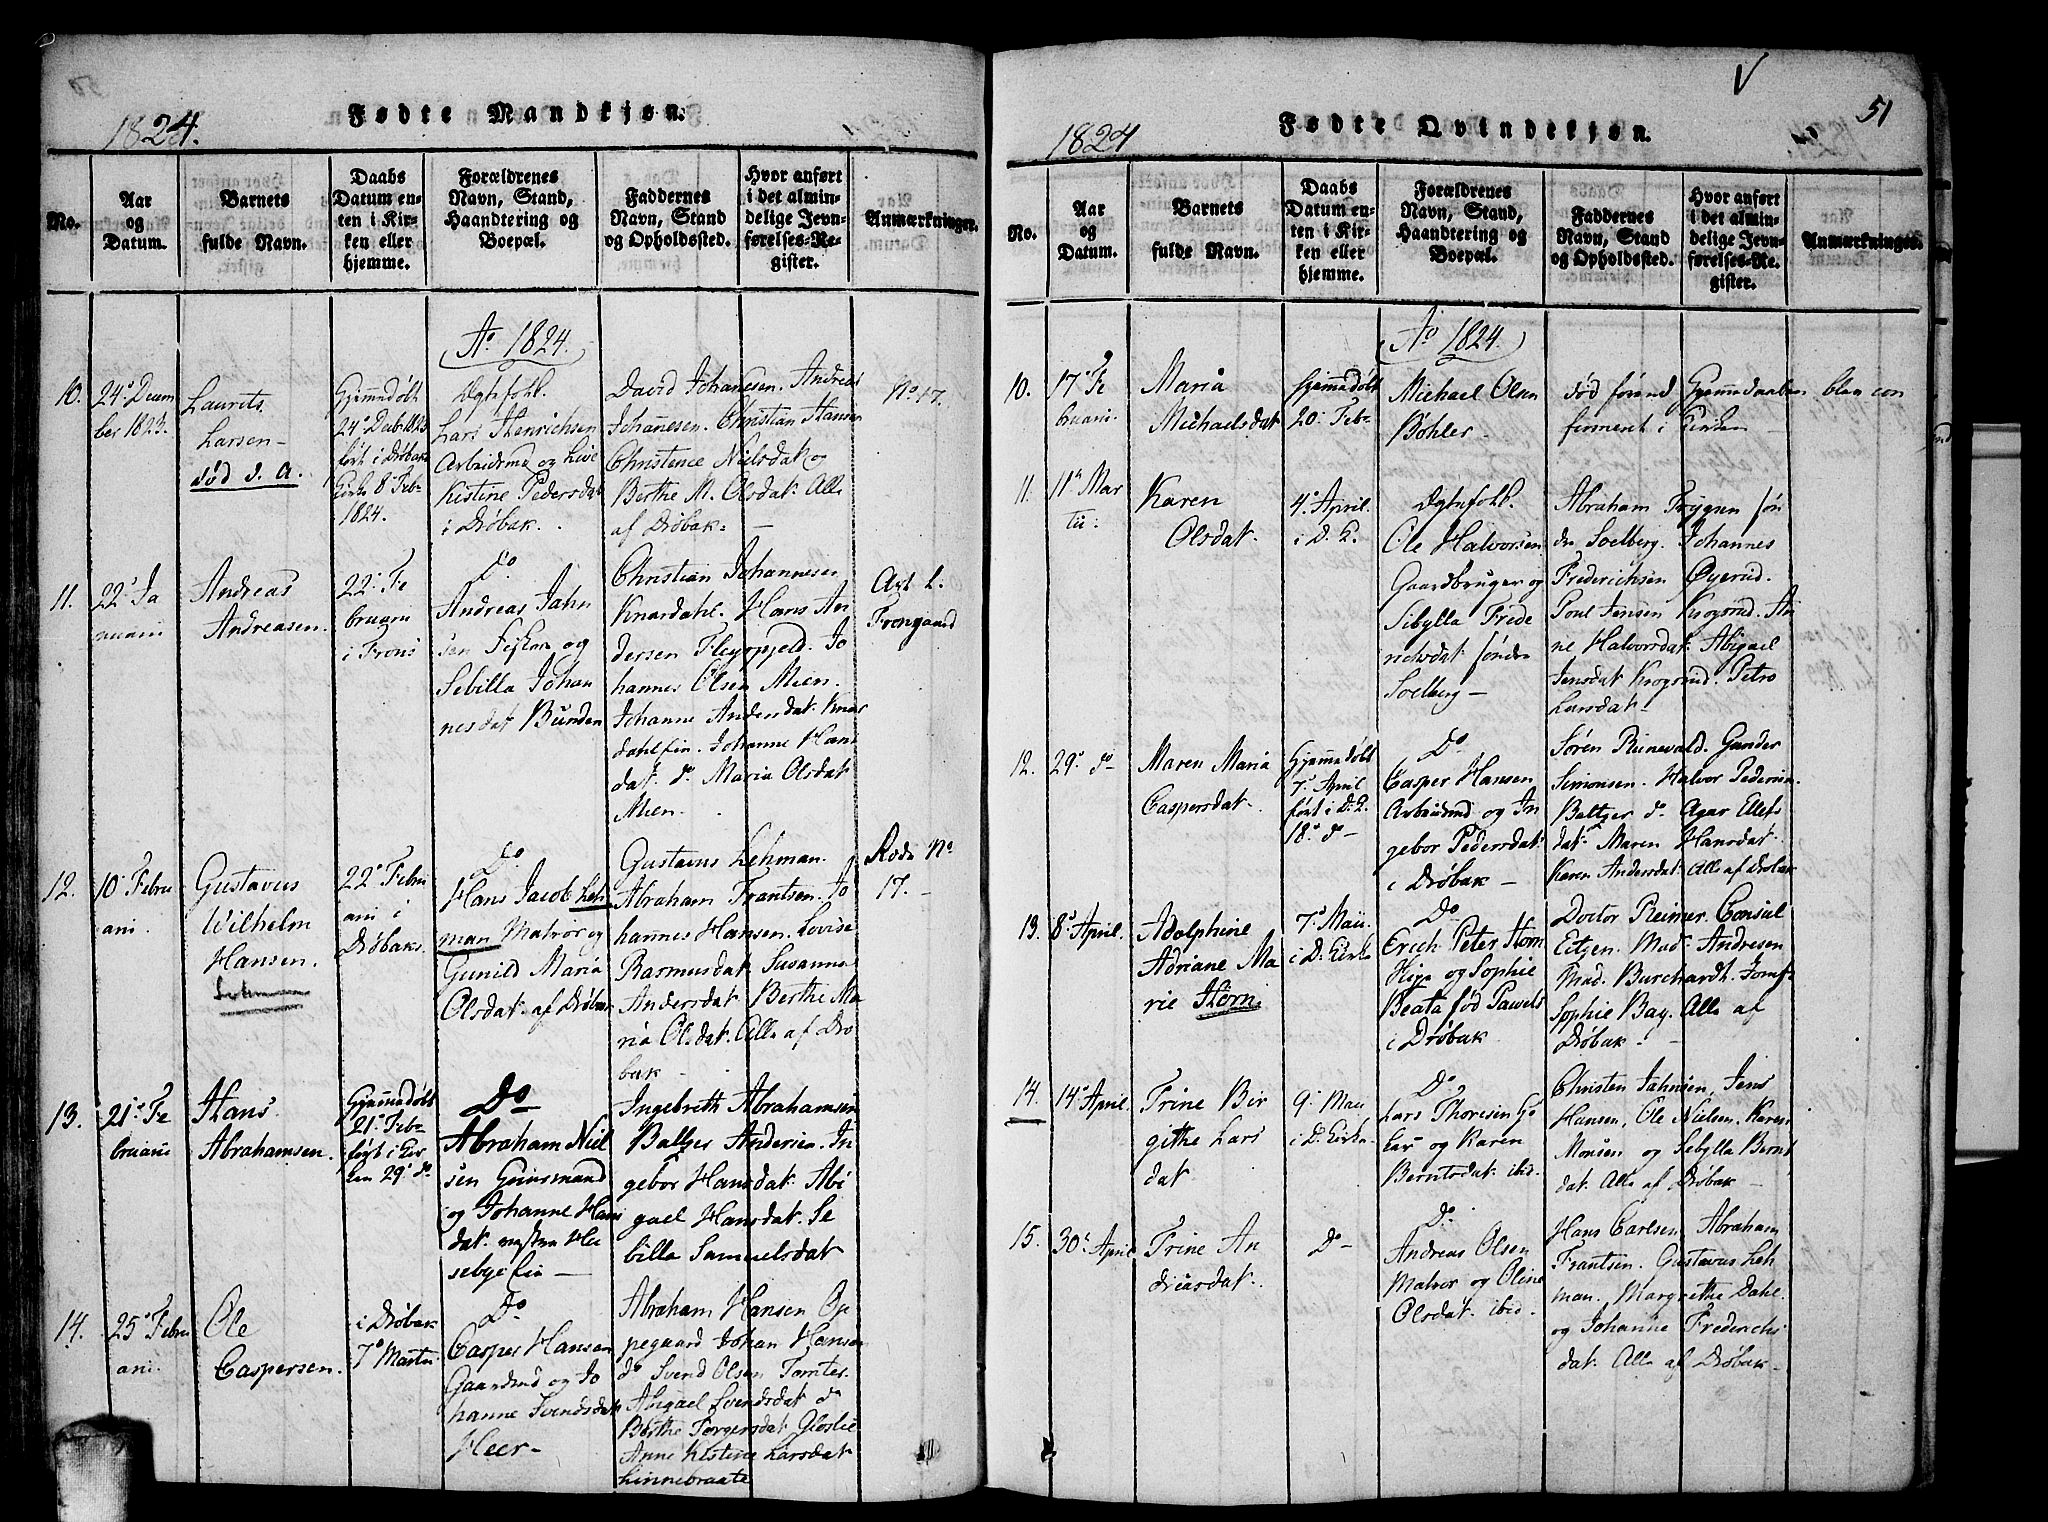 1824.
Fødte Mandkjøn.
No.
Aar og Datum.
Barnets fulde Navn.
Daabs Datum enten i Kirken eller hjemme.
Forældrenes Navn, Stand, Haandtering og Boepæl.
Faddernes Navn, Stand og Opholdssted.
Hvor anført i det almindelige Jevnførelses-Register.
Anmærkninger.
Ao 1824.
10.
24de Decem
ber 1823.
Laurits
Larsen
død s. A.
Hjemmedøbt
24de Decb. 1823
ført i Drøbaks
Kirke 8de Feb.
1824.
Ægtefolk.
Lars Henrichsen
Arbeidsmd og Live
Kistine Pedersdat
i Drøbak.
David Johanesen. Andreas
Johanesen. Christian Hansen
Christence Nielsdat og
Berthe M. Olsdat. Alle
af Drøbak
No 17.
11.
22de Ja
nuarii
Andreas
Andreasen.
22de Fe
bruarii
i Frons
Do
Andreas Jahn
sen Fisker og
Sebilla Johan
nesdat Bunden
Christian Johannesen
Knardahl. Hans An
dersen Fleyopjeld. Jo
hannes Olsen Meen.
Johanne Andersdat Knar
dahlsein. Johanne Hans
dat. do Maria Olsdat
Meen.
Frongaard
12.
10de Febru
arii.
Gustavus
Wilhelm
Hansen.
Lehman
22de Febru
arii i
Drøbaks
Do
Hans Jacob Leh
man Matros og
Gunild Maria
Olsdat. af Drøbak
Gustavus Lehman.
Abraham Frantsen. Jo
hannes Hansen. Lovise
Rasmusdat Susanna
Andersdat Berthe Ma
ria Olsdat. Alle af Drø
bak
Rode No
17.
13.
21de Fe
bruarii
Hans
Abrahamsen.
Hjemmedøbt
21de Feb.
ført i Kir
ken 29de do
Do
Abraham Niel
sen Huusmand
og Johanne Hans
dat.
Ingebreth Abrahamsen
Baltzer Andersen. In
gebor Hansdat. Abi
gael Hansdat. Se
billa Samuelsdat
14.
25de Febru
arii.
Ole
Caspersen.
i Drøbak
7de Martii
Do
Casper Hansen
Gaardmd og Jo
hanne Svendsdat
Heer
Abraham Hansen Op
pegaard Johan Hansen
do Svend Olsen Tomter.
Abigael Svendsdat do
Berthe Torgersdat Gloslie
Anne Kistine Larsdat
Linnebraate
1824
Fødte Qvindekjøn.
51
No.
Aar og Datum.
Barnets fulde Navn.
Daabs Datum enten i Kirken eller hjemme.
Forældrenes Navn, Stand, Haandtering og Boepæl.
Faddernes Navn, Stand og Opholdssted.
Hvor anført i det almindelige Jevnførelses-Register.
Anmærkninger.
Ao 1824.
10.
17de Fe
bruarii
Maria
Michaelsdat
Hjemmedøbt
20de Feb.
Michael Olsen
Bøhler
død førend Hjemmedaaben blev con
firmeret i Kirken
11.
11te Mar
tii
Karen
Olsdat.
4de April.
i D. K.
Ægtefolk.
Ole Halvorsen
Gaardbruger og
Sibylla Frede
richsdat søndre
Soelberg
Abraham Trygesen søn
dre Soelberg. Johannes
Frederichsen Øyerud.
Poul Jensen Krogsrud. An
ne Halvorsdat. Abigael
Jensdat Krogsrud. Petro
Larsdat
12.
29de do
Maren Maria
Caspersdat.
Hjemmedøbt
7de April
ført i D. K.
18de do
Do
Casper Hansen
Arbeidsmd og In
gebor Pedersdat.
i Drøbak
Søren Runevald. Gunder
Simonsen. Halvor Pedersen.
Baltzer do Agar Ellefs
dat. Maren Hansdat.
Karen Andersdat. Alle af Drøbak
13.
8de April.
Adolphine
Adriane Ma
rie Horn.
7de Maii.
i D. Kirke
Do
Erich Peter Horn
Hige og Sophie
Beata fød Pawels
i Drøbak
Doctor Reimer. Consul
Eitzen. Mad. Andresen
Mad. Burchardt. Jomf.
Sophie Bay. Alle af
Drøbak
14.
14de April.
Trine Bir
githe Lars
dat.
9de Maii
i D. Kirke
Do
Lars Thoresen
og Karen
Berntsdat. ibid.
Christen Jahnsen, Jens
Hansen, Ole Nielsen. Karen
Monsen og Sebylla Bernt
dat. Alle af Drøbak
15.
30te April
Trine An
dreasdat.
Do
Do
Andreas Olsen
Matros og Oline
Olsdat. ibid.
Hans Carlsen. Abraham
Frantsen. Gustavus Leh
man. Margrethe Dahl.
og Johanne Frederichs
dat. Alle af Drøbak